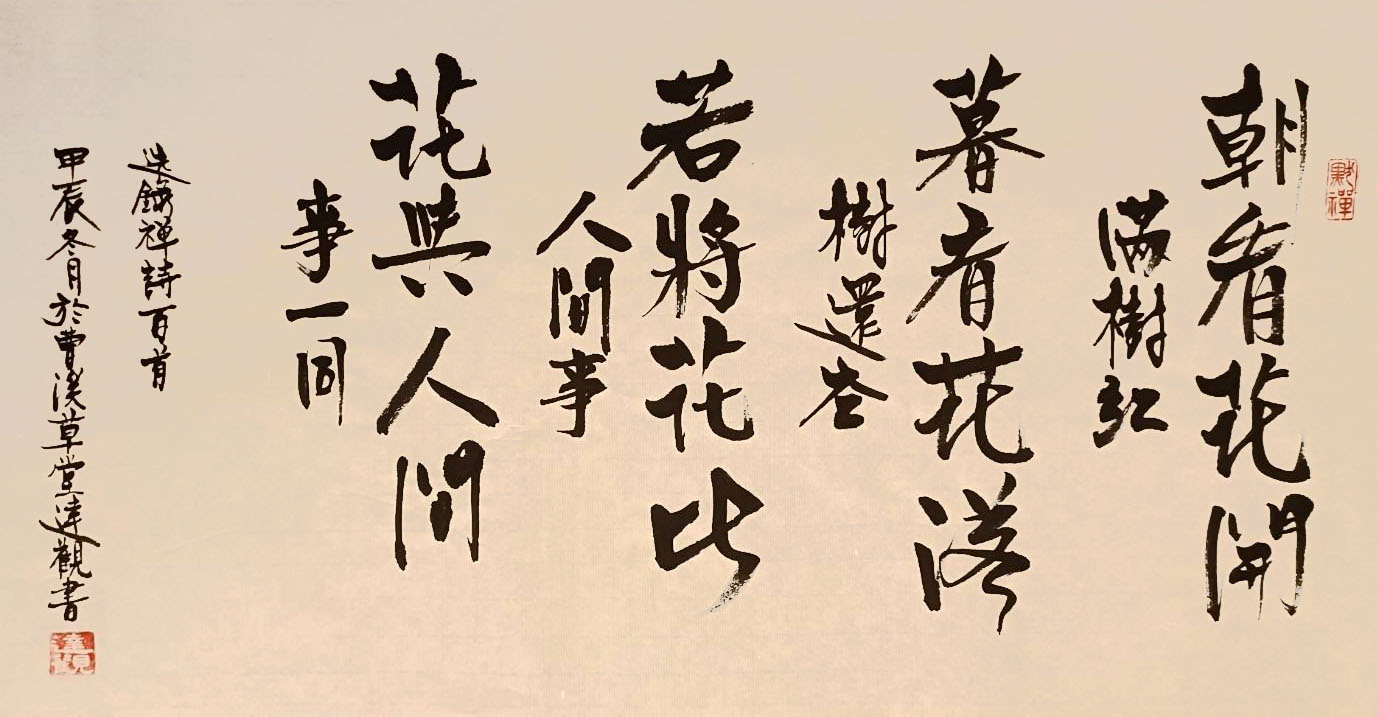 默禪
朝看花開
滿樹紅
暮看花落
樹還空
若將花比
人間事
花與人間
事一同
选錄禪詩百首
甲辰冬月於曹溪草堂達觀書
達觀